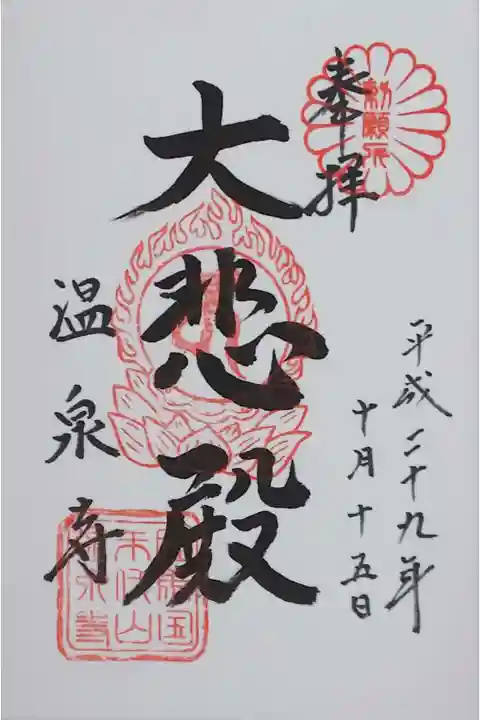 奉拝
勅願所
平成二十九年
十月十五日
大悲殿
温泉寺
但馬国
末代山
温泉寺